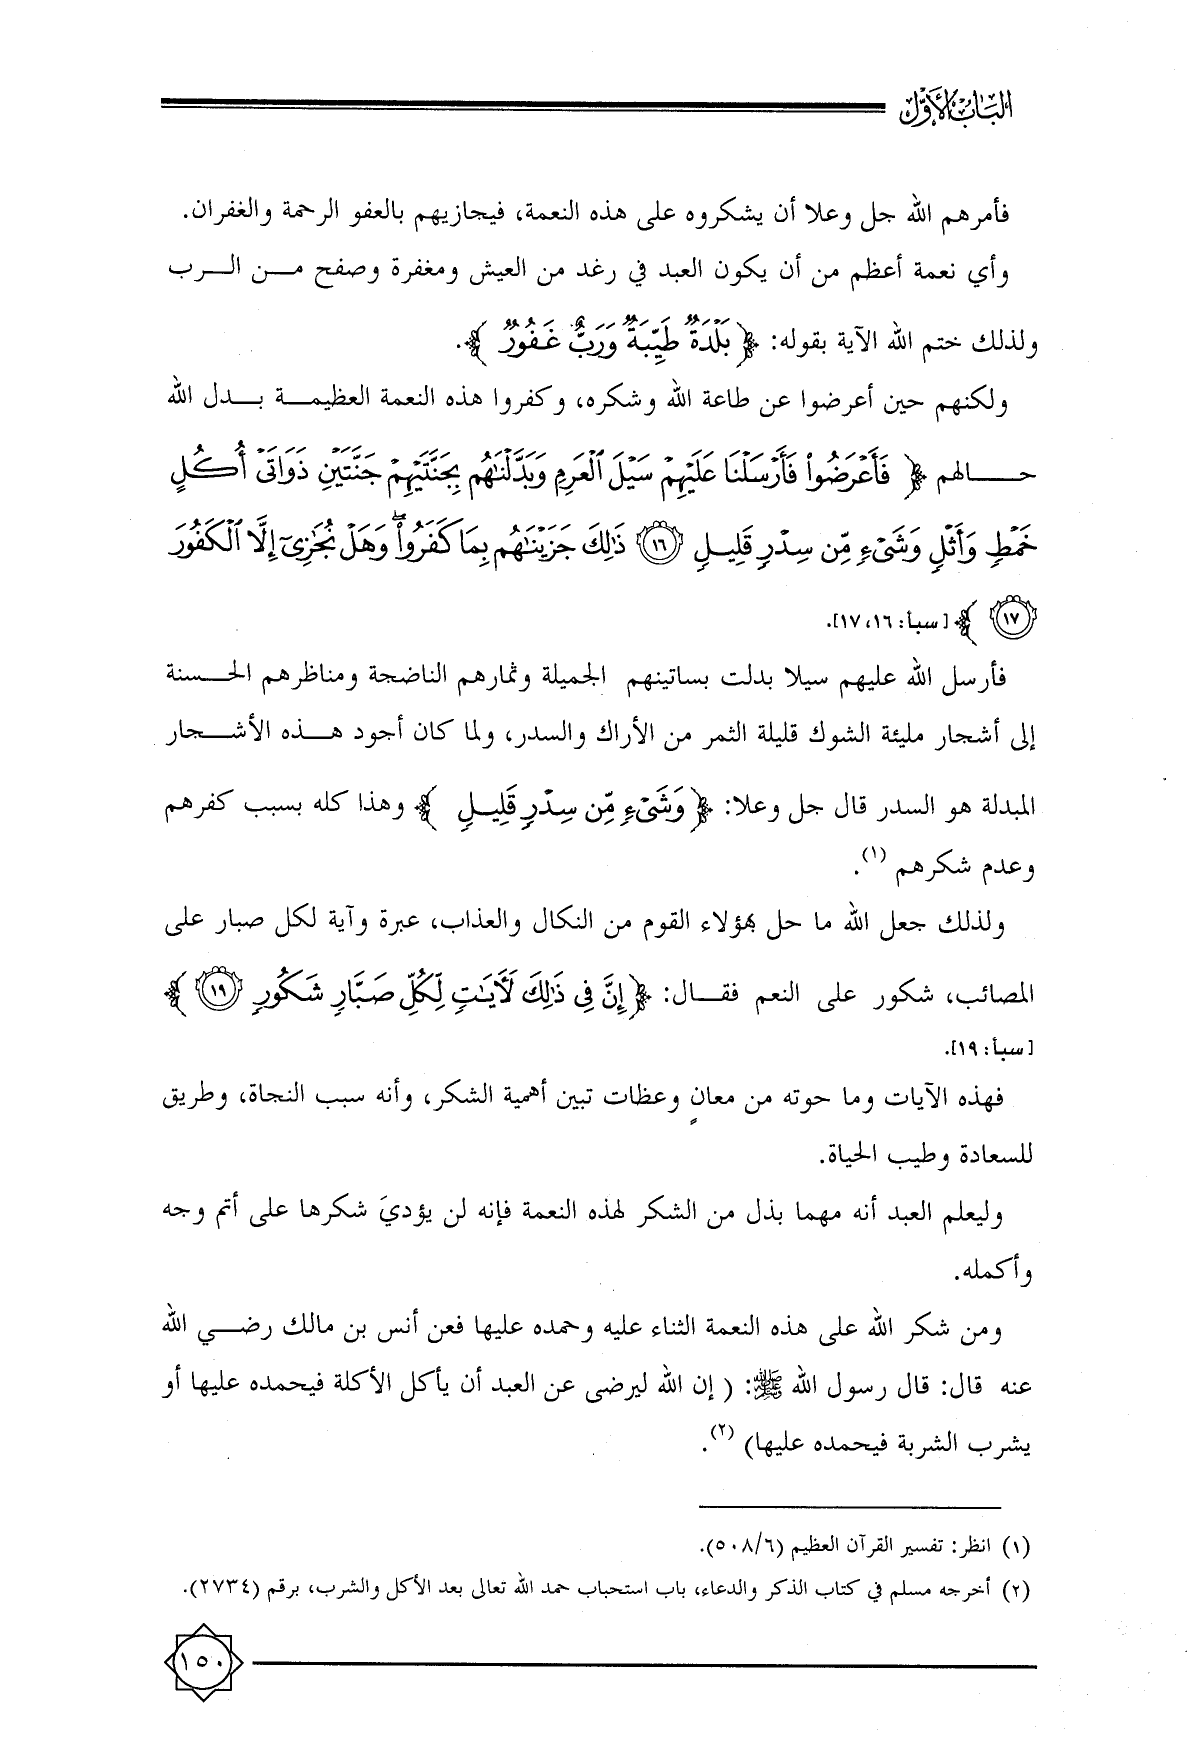 الباب الأول
فأمرهم الله جل وعلا أن يشكروه على هذه النعمة، فيجازيهم بالعفو الرحمة والغفران.
وأي نعمة أعظم من أن يكون العبد في رغد من العيش ومغفرة وصفح مـــن الـــرب
ولذلك ختم الله الآية بقوله: ﴿ بَلْدَةٌ طَيِّبَةٌ وَرَبٌّ غَفُورٌ ﴾.
ولكنهم حين أعرضوا عن طاعة الله وشكره، وكفروا هذه النعمة العظيمـــة بـــدل الله
حـــــالهم ﴿ فَأَعْرَضُوا۟ فَأَرْسَلْنَا عَلَيْهِمْ سَيْلَ ٱلْعَرِمِ وَبَدَّلْنَٰهُم بِجَنَّتَيْهِمْ جَنَّتَيْنِ ذَوَاتَىْ أُكُلٍ
خَمْطٍ وَأَثْلٍ وَشَىْءٍ مِّن سِدْرٍ قَلِيلٍ ﴿١٦﴾ ذَٰلِكَ جَزَيْنَٰهُم بِمَا كَفَرُوا۟ ۖ وَهَلْ نُجَٰزِىٓ إِلَّا ٱلْكَفُورَ
﴿١٧﴾ ﴾ [سبأ: ١٦، ١٧].
فأرسل الله عليهم سيلا بدلت بساتينهم الجميلة وثمارهم الناضجة ومناظرهم الحـــسنة
إلى أشجار مليئة الشوك قليلة الثمر من الأراك والسدر، ولما كان أجود هـــذه الأشـــجار
المبدلة هو السدر قال جل وعلا: ﴿ وَشَىْءٍ مِّن سِدْرٍ قَلِيلٍ ﴾ وهذا كله بسبب كفرهم
وعدم شكرهم (١).
ولذلك جعل الله ما حل بهؤلاء القوم من النكال والعذاب، عبرة وآية لكل صبار على
المصائب، شكور على النعم فقـــال: ﴿ إِنَّ فِى ذَٰلِكَ لَءَايَٰتٍ لِّكُلِّ صَبَّارٍ شَكُورٍ ﴿١٩﴾ ﴾
[سبأ: ١٩].
فهذه الآيات وما حوته من معانٍ وعظات تبين أهمية الشكر، وأنه سبب النجاة، وطريق
للسعادة وطيب الحياة.
وليعلم العبد أنه مهما بذل من الشكر لهذه النعمة فإنه لن يؤديَ شكرها على أتم وجه
وأكمله.
ومن شكر الله على هذه النعمة الثناء عليه وحمده عليها فعن أنس بن مالك رضـــي الله
عنه قال: قال رسول الله ﷺ: ( إن الله ليرضى عن العبد أن يأكل الأكلة فيحمده عليها أو
يشرب الشربة فيحمده عليها) (٢).
(١) انظر: تفسير القرآن العظيم (٥٠٨/٦).
(٢) أخرجه مسلم في كتاب الذكر والدعاء، باب استحباب حمد الله تعالى بعد الأكل والشرب، برقم (٢٧٣٤).
١٥٠